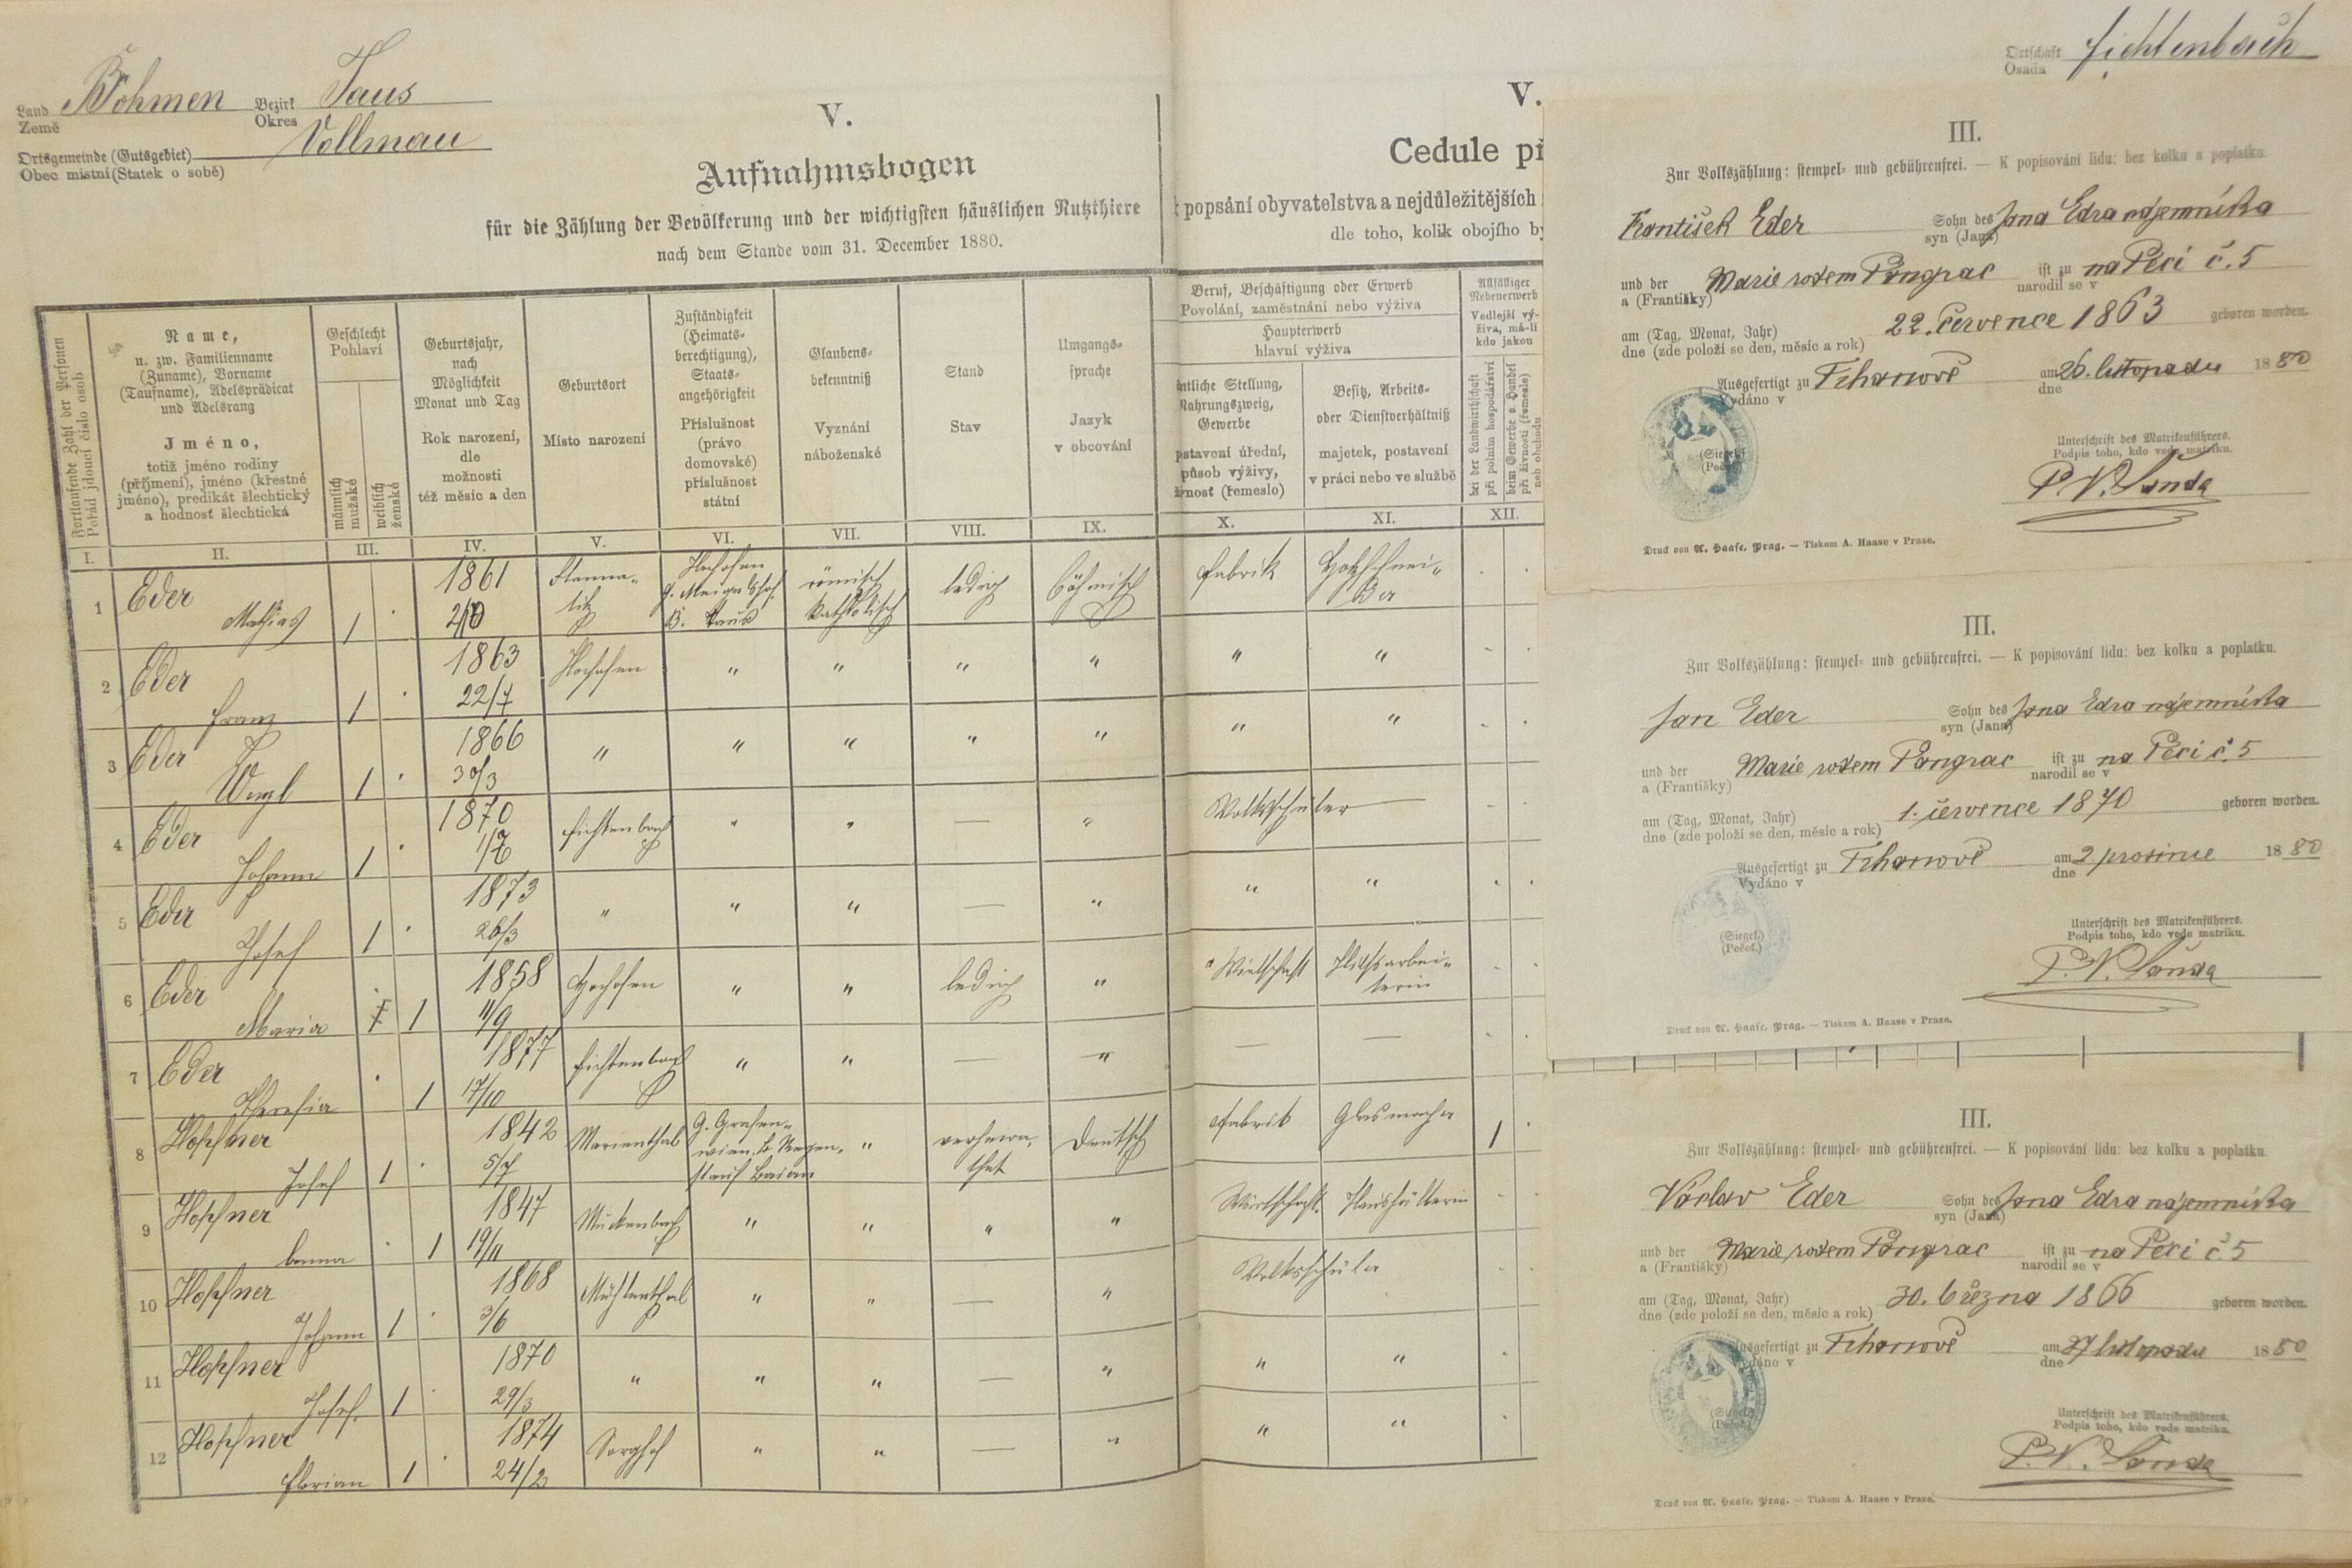 Land Böhmen Bezirk Taus
Země Okres
Ortsgemeinde (Gutsgebiet) Vollmau
Obec místní (Statek o sobě)
V.
Aufnahmsbogen
für die Zählung der Bevölkerung und der wichtigsten häuslichen Nutzthiere
nach dem Stande vom 31. December 1880.
V.
Cedule př
popsání obyvatelstva a nejdůležitějších
dle toho, kolik obojího by
Ortschaft Fichtenbach
Osada
Fortlaufende Zahl der Personen
Pořád jdoucí číslo osob
Name,
u. zw. Familienname
(Zuname), Vorname
(Taufname), Adelsprädicat
und Adelsrang
Jméno,
totiž jméno rodiny
(příjmení), jméno (křestné
jméno), predikát šlechtický
a hodnosť šlechtická
Geschlecht
Pohlaví
männlich
mužské
weiblich
ženské
Geburtsjahr,
nach
Möglichkeit
Monat und Tag
Rok narození,
dle
možnosti
též měsíc a den
Geburtsort
Místo narození
Zuständigkeit
(Heimats-
berechtigung),
Staats-
angehörigkeit
Příslušnost
(právo
domovské)
příslušnost
státní
Glaubens-
bekenntniß
Vyznání
náboženské
Stand
Stav
Umgangs-
sprache
Jazyk
v obcování
Beruf, Beschäftigung oder Erwerb
Povolání, zaměstnání nebo výživa
Haupterwerb
hlavní výživa
ntliche Stellung,
Nahrungszweig,
Gewerbe
ostavení úřední,
působ výživy,
živnosť (řemeslo)
Besitz, Arbeits-
oder Dienstverhältniß
majetek, postavení
v práci nebo ve službě
Allfälliger
Nebenerwerb
Vedlejší vý-
živa, má-li
kdo jakou
bei der Landwirthschaft
při polním hospodářství
beim Gewerbe o. Handel
při živnosti (řemesle)
neb obchodu
I. II. III. IV. V. VI. VII. VIII. IX. X. XI. XII.
1 Eder Mathias 1 1861 Stanna-litz Hochofen römisch katholisch ledig böhmisch Fabrik Holzschnei-der
2 Eder Franz 1 1863 22/7 Hochofen " " " " " "
3 Eder Wenzl 1 1866 30/3 " " " " " " "
4 Eder Johann 1 1870 1/7 Fichtenbach " " — " Volksschüler —
5 Eder Josef 1 1873 26/3 " " " — " " "
6 Eder Maria 1 1858 11/9 Hochofen " " ledig " Wirtschaft Hilfsarbei-terin
7 Eder Theresia 1 1877 17/10 Fichtenbach " " — " — —
8 Hopfner Josef 1 1842 5/7 Marienthal G. Grafen-wien. b. Regen-stauf Baiern " verheira-thet Deutsch Fabrik Glasmacher 1
9 Hopfner Anna 1 1847 19/11 Muckenbach " " " " Wirtschaft Haushälterin
10 Hopfner Johann 1 1868 3/6 Mühlenthal " " — " Volksschüler
11 Hopfner Josef 1 1870 29/3 " " " — " " "
12 Hopfner Florian 1 1874 24/2 Sorghof " " — " " "
III.
Zur Volkszählung: stempel- und gebührenfrei. — K popisování lidu: bez kolku a poplatku.
František Eder Sohn des Jana Edra nájemníka
syn (Jana)
und der Marie rodem Pangrac ist zu na Peci č. 5
a (Františky) narodil se v
am (Tag, Monat, Jahr) 22. července 1863 geboren worden.
dne (zde položí se den, měsíc a rok)
Ausgefertigt zu Trhanově am 26. listopadu 1880
Vydáno v dne
(Siegel)
(Pečeť)
Unterschrift des Matrikenführers.
Podpis toho, kdo vede matriku.
Druck von A. Haase, Prag. — Tiskem A. Haase v Praze.
III.
Zur Volkszählung: stempel- und gebührenfrei. — K popisování lidu: bez kolku a poplatku.
Jan Eder Sohn des Jana Edra nájemníka
syn (Jana)
und der Marie rodem Pangrac ist zu na Peci č. 5
a (Františky) narodil se v
am (Tag, Monat, Jahr) 1. července 1870 geboren worden.
dne (zde položí se den, měsíc a rok)
Ausgefertigt zu Trhanově am 2 prosince 1880
Vydáno v dne
(Siegel.)
(Pečeť.)
Unterschrift des Matrikenführers.
Podpis toho, kdo vede matriku.
Druck von A. Haase, Prag. — Tiskem A. Haase v Praze.
III.
Zur Volkszählung: stempel- und gebührenfrei. — K popisování lidu: bez kolku a poplatku.
Václav Eder Sohn des Jana Edra nájemníka
syn (Jana)
und der Marie rodem Pangrac ist zu na Peci č. 5
a (Františky) narodil se v
am (Tag, Monat, Jahr) 30. března 1866 geboren worden.
dne (zde položí se den, měsíc a rok)
Ausgefertigt zu Trhanově am 27 listopadu 1880
Vydáno v dne
(Siegel)
(Pečeť)
Unterschrift des Matrikenführers.
Podpis toho, kdo vede matriku.
Druck von A. Haase, Prag. — Tiskem A. Haase v Praze.